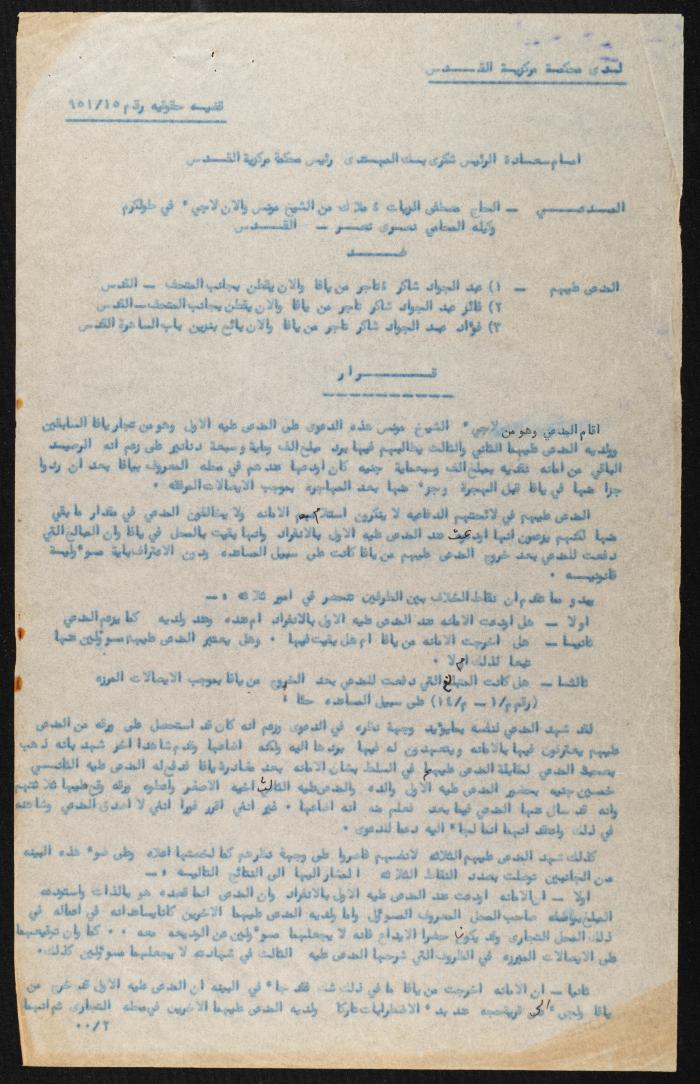 لدى محكمة مركزية القدس
قضيه حقوقيه رقم ٩٥١/١٥
امام سعادة الرئيس شكري بك المهتدى رئيس محكمة مركزية القدس
المدعي — الحاج مصطفى الزيات ملاك من الشيخ مونس والان لاجيء في طولكرم
وكيله المحامي نصرى نصر — القدس
ضد
المدعى عليهم — ١) عبد الجواد شاكر تاجر من يافا والان يقطن بجانب المتحف — القدس
٢) فائز عبد الجواد شاكر تاجر من يافا والان يقطن بجانب المتحف — القدس
٣) فؤاد عبد الجواد شاكر تاجر من يافا والان بائع بنزين باب الساهرة القدس
قرار
اقام المدعي وهو من لاجيء الشيخ مونس هذه الدعوى على المدعى عليه الاول وهو من تجار يافا السابقين
وولديه المدعى عليهما الثاني والثالث يطالبهم فيها برد مبلغ الف وماية وسبعة دنانير على زعم انه الرصيد
الباقي من امانه نقديه بمبلغ الف وسبعماية جنيه كان اودعها عندهم في محله المعروف بيافا بعد ان ردوا
جزا منها في يافا قبل الهجرة وجزء منها بعد المهاجره بموجب الايصالات المرفقه .
المدعى عليهم في لائحتهم الدفاعيه لا ينكرون استلامهم الامانه ولا يخالفون المدعي في مقدار ما بقي
منها لكنهم يزعمون انها اودعت عند المدعى عليه الاول بالانفراد وانها بقيت بالمحل في يافا وان المبالغ التي
دفعت للمدعي بعد خروج المدعى عليهم من يافا كانت على سبيل المساعده ودون الاعتراف باية مسؤولية
قانونيه .
يبدو مما تقدم ان نقاط الخلاف بين الطرفين تنحصر في امور ثلاثة :—
اولا — هل اودعت الامانه عند المدعى عليه الاول بالانفراد ام عنده وعند ولديه كما يزعم المدعي
ثانيا — هل اخرجت الامانه من يافا ام هل بقيت فيها . وهل يعتبر المدعى عليهم مسؤولين عنها
تبعا لذلك ام لا .
ثالثا — هل كانت المبالغ التي دفعت للمدعي بعد الخروج من يافا بموجب الايصالات المبرزه
(رقم م/١ — م/١٤) على سبيل المساعده حقا ؟
لقد شهد المدعي لنفسه بما يؤيد وجهة نظره في الدعوى وزعم انه كان قد استحصل على ورقه من المدعى
عليهم يعترفون فيها بالامانه ويتعهدون له فيها بردها اليه ولكنه اضاعها وقدم شاهدا اخر شهد بانه ذهب
بصحبة المدعي لمقابلة المدعى عليهم في السلط بشان الامانه بعد مغادرة يافا فدفع له المدعى عليه الثاني
خمسين جنيه بحضور المدعى عليه الاول والده والمدعى عليه الثالث اخيه الاصغر واعطوه ورقه وقع عليها ثلاثتهم
وانه قد سال عنها المدعي فيما بعد فعلم منه انه اضاعها . غير انني اقرر فورا انني لا اصدق المدعي وشاهده
في ذلك واعتقد انهما انما لجأ اليه دعما للدعوى .
كذلك شهد المدعى عليهم الثلاثه لانفسهم فاصروا على وجهة نظرهم كما لخصتها اعلاه وعلى ضوء هذه البينه
من الجانبين توصلت بصدد النقاط الثلاثه المشار اليها الى النتائج التاليه :—
اولا — ان الامانه اودعت عند المدعى عليه الاول بالانفراد وان المدعي انما قصده هو بالذات واستودعه
المبلغ بواصفه صاحب المحل المعروف المسؤول واما ولديه المدعى عليهما الاخرين كانا يساعدانه في اعماله في
ذلك المحل التجارى وقد يكونا حضرا الايداع فانه لا يجعلهما مسؤولين عن الوديعه معه .. كما وان توقيعهما
على الايصالات المبرزه في الظروف التي شرحها المدعى عليه الثالث في شهادته لا يجعلهما مسؤولين كذلك .
ثانيا — ان الامانه اخرجت من يافا ما في ذلك شك فقد جاء في البينه ان المدعى عليه الاول قد خرج من
يافا ولجيء الى عند بدء الاضطرابات تاركا ولديه المدعى عليهما الاخرين في محله التجارى ثم انهما
٠٠/٢